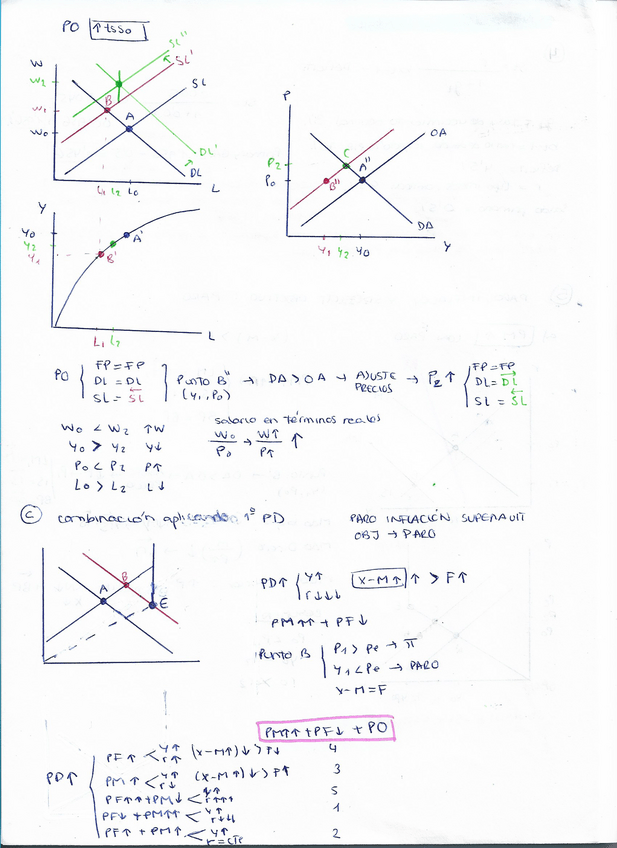 PO ↑tSSo
SL''
SL'
W
W2
W1
W0
SL
B
A
DL'
DL
L1 L2 L0 L
Y
Y0
Y2
Y1
A'
B'
L1 L2 L
P
P2
P0
OA
C
A''
B''
DA
Y1 Y2 Y0 Y
PO { FP = FP
DL = DL
SL = SL
PUNTO B'' → DA > OA → AJUSTE PRECIOS → P2 ↑
(Y1, P0)
FP = FP
DL = DL
SL = SL
W0 < W2 ↑W
Y0 > Y2 Y↓
P0 < P2 P↑
L0 > L2 L↓
salario en términos reales
W0/P0 → W↑/P↑ ↑
C combinación aplicando 1º PD
PARO INFLACIÓN SUPERAVIT
OBJ → PARO
A
B
E
PD↑ { Y↑ X-M↑ ↑ > F↑
r↓↓↓
PM↑↑ + PF↓
PUNTO B { P1 > Pe → π
Y1 < Pe → PARO
X-M = F
PM↑↑ + PF↓ + PO
PD↑ { PF↑ < Y↑ r↑ (X-M↑)↓ > F↓ 4
PM↑ < Y↑ r↓ (X-M↑)↓ > F↑ 3
PF↑↑ + PM↓ < Y↑ r↑↑↑ 5
PF↓ + PM↑↑ < Y↑ r↓↓↓ 1
PF↑ + PM↑ < Y↑ r=cte 2